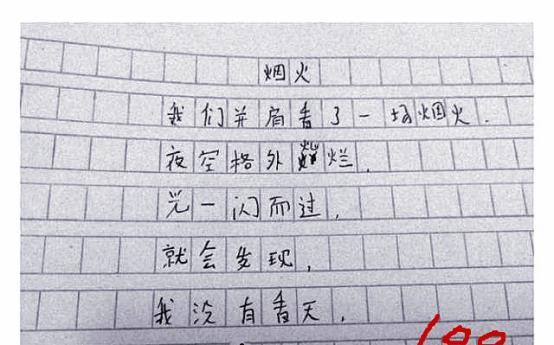 烟火
我们并肩看了一场烟火.
夜空格外灿烂,
光一闪而过,
就会发现,
我没有看天,
100